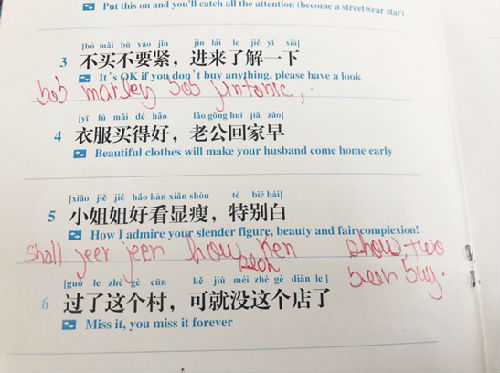 Put this on and you'll catch all the attention (become a streetwear star)
[bò mǎi bú yào jǐn jìn lái le jiě yí xià]
3 不买不要紧，进来了解一下
It's OK if you don't buy anything, please have a look
bob marley bob jintonic,.
[yī fú mǎi dé hǎo lǎo gōng huí jiā zǎo]
4 衣服买得好，老公回家早
Beautiful clothes will make your husband come home early
[xiǎo jiě jiě hǎo kàn xiǎn shòu tè bié bái]
5 小姐姐好看显瘦，特别白
How I admire your slender figure, beauty and fair complexion!
shall jeer jeer how ken show, two
bean buy.
[guò le zhè gè cūn kě jiù méi zhè gè diàn le]
6 过了这个村，可就没这个店了
Miss it, you miss it forever